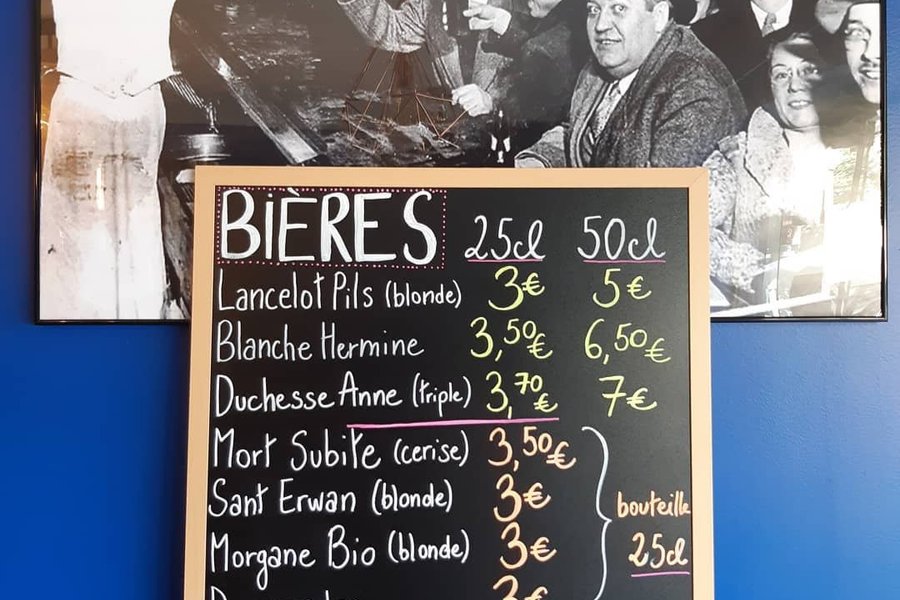 BIÈRES 25cl 50cl
Lancelot Pils (blonde) 3€ 5€
Blanche Hermine 3,50€ 6,50€
Duchesse Anne (triple) 3,70€ 7€
Mort Subite (cerise) 3,50€
Sant Erwan (blonde) 3€ bouteille
Morgane Bio (blonde) 3€ 25cl
3€